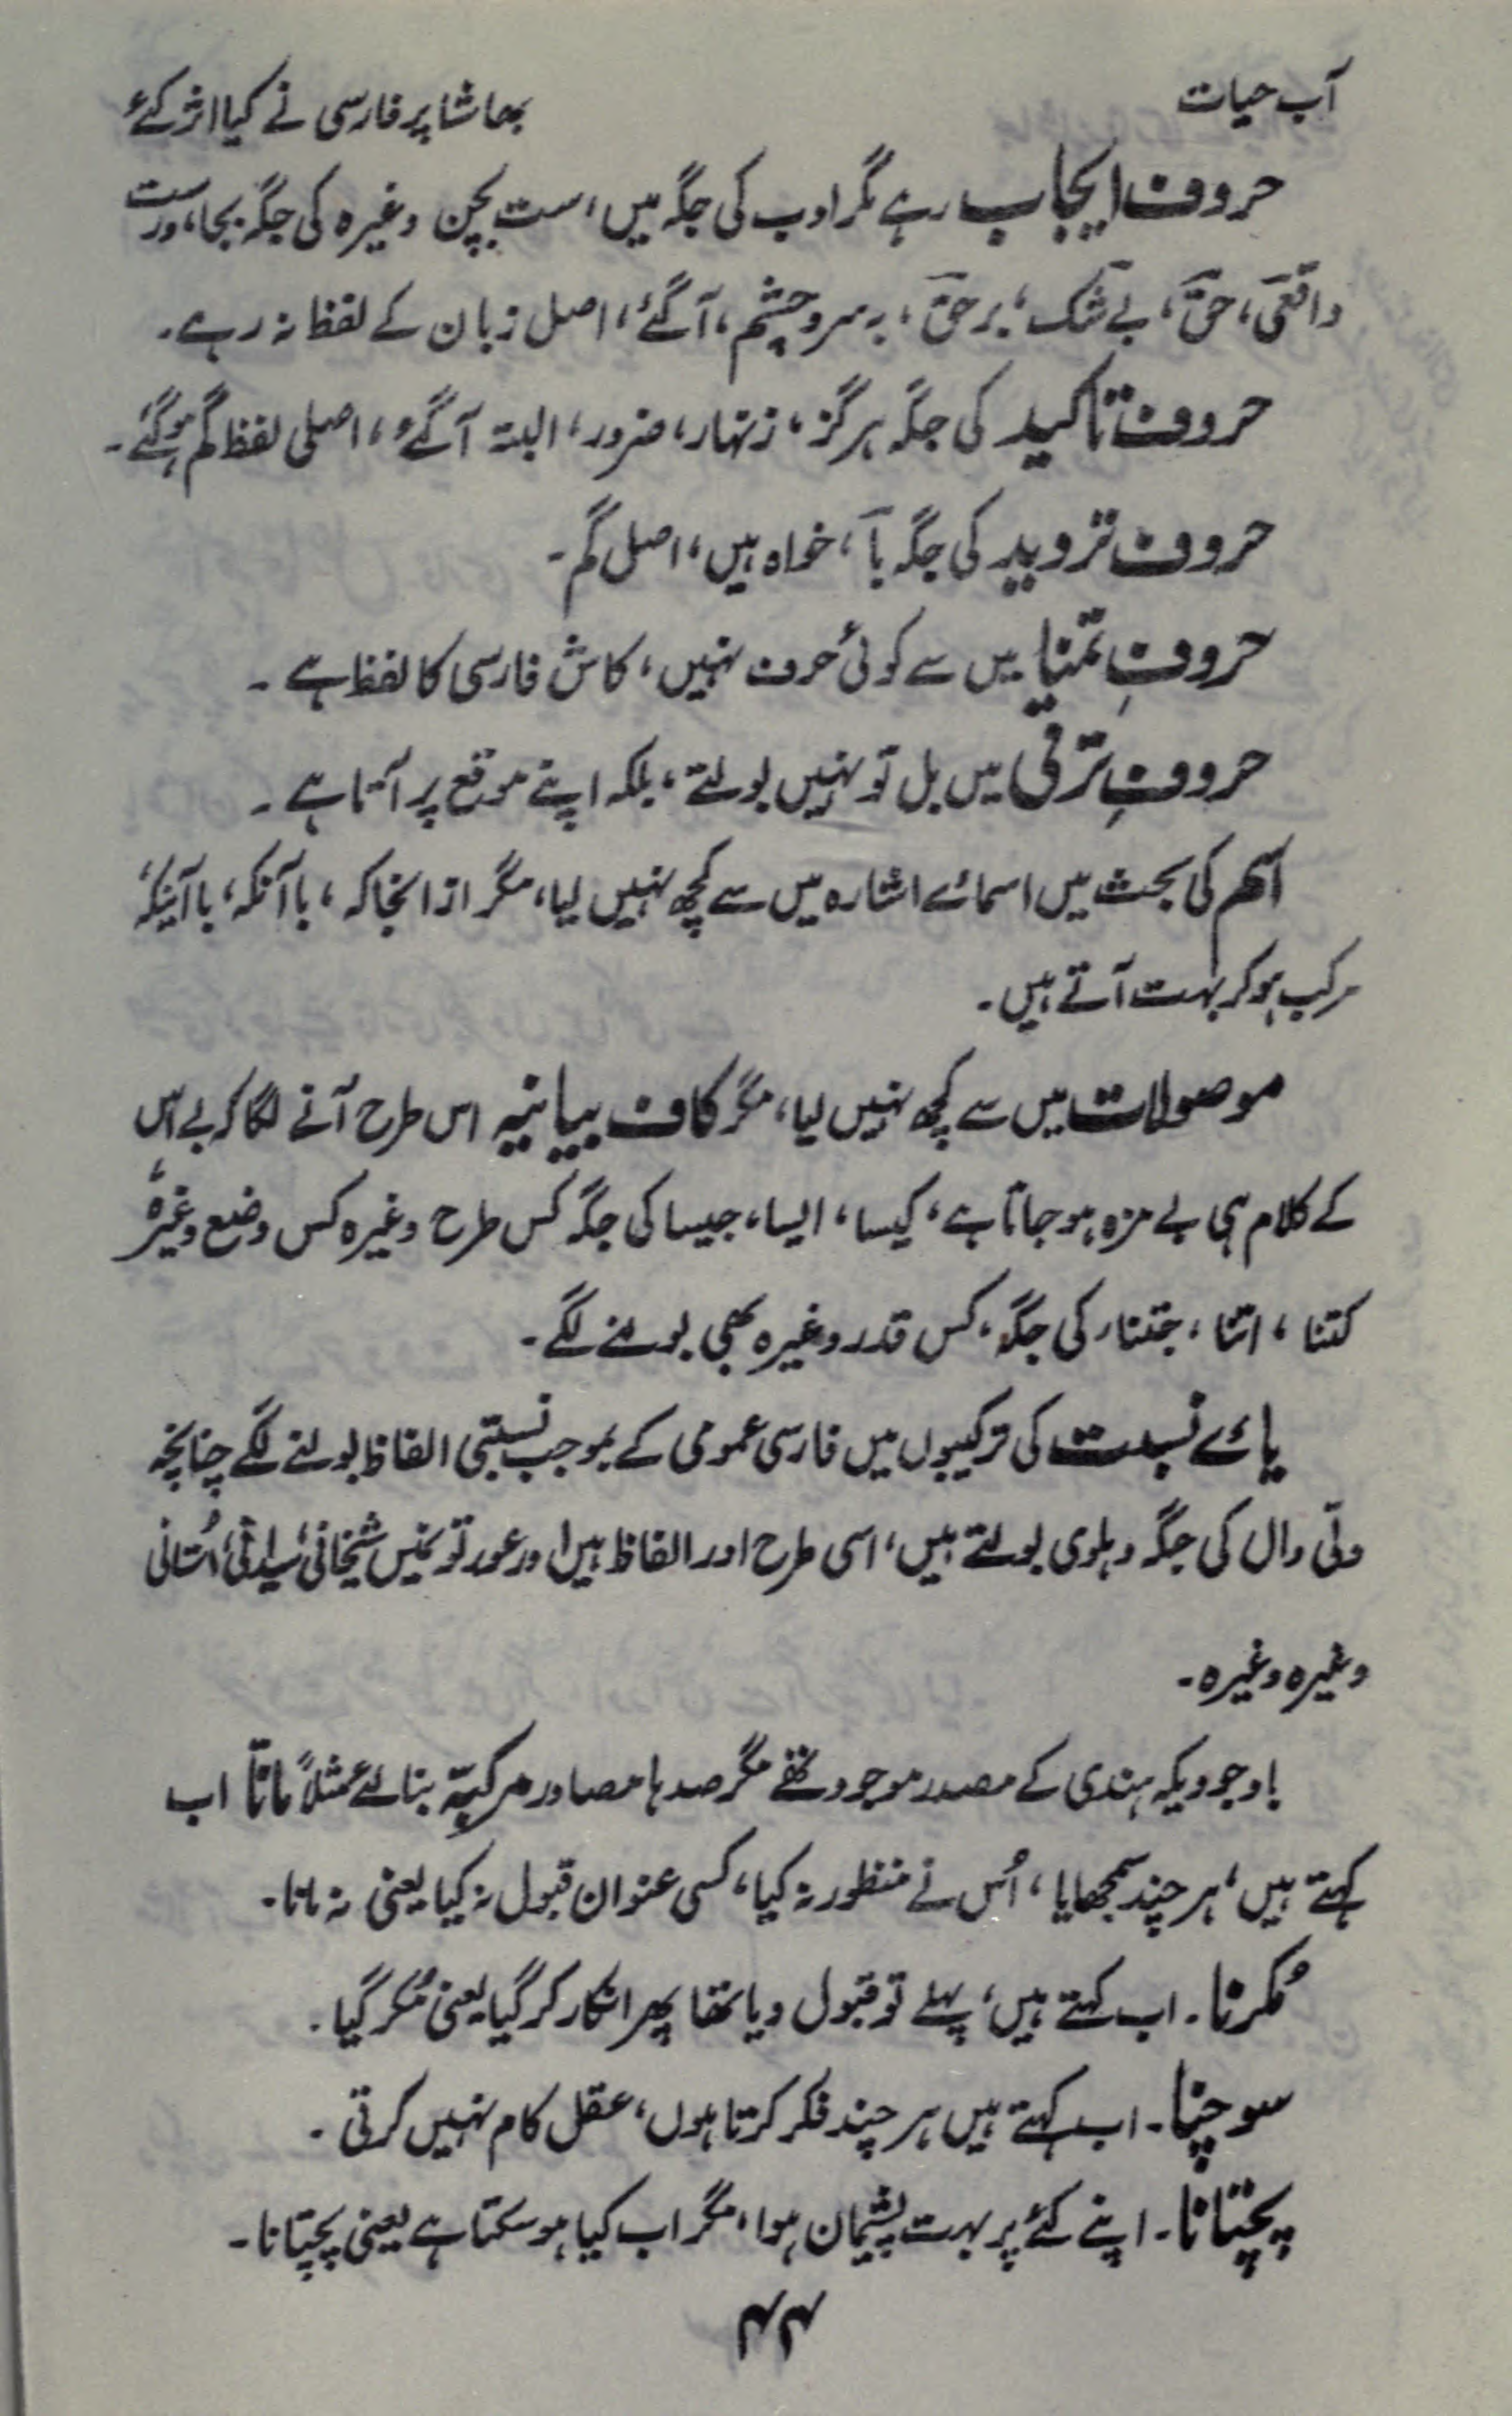 آب حیات
بھاشا پر فارسی نے کیا اثر کئے
حروف ایجاب رہے مگر ادب کی جگہ میں، ست بچن وغیرہ کی جگہ بجا، درست
واقعی، حق، بے شک، برحق، بہ سر و چشم، آ گئے، اصل زبان کے لفظ نہ رہے۔
حروف تاکید کی جگہ ہرگز، زنہار، ضرور، البتہ آ گئے، اصلی لفظ گم ہو گئے۔
حروف تردید کی جگہ یا، خواہ ہیں، اصل گم۔
حروفِ تمنا میں سے کوئی حرف نہیں، کاش فارسی کا لفظ ہے۔
حروفِ ترقی میں بل تو نہیں بولتے، بلکہ اپنے موقع پر آتا ہے۔
اسم کی بحث میں اسمائے اشارہ میں سے کچھ نہیں لیا، مگر ازانجا کہ، باآنکہ، باآینکہ
مرکب ہو کر بہت آتے ہیں۔
موصولات میں سے کچھ نہیں لیا، مگر کاف بیانیہ اس طرح آنے لگا کہ بے اس
کے کلام ہی بے مزہ ہو جاتا ہے، کیسا، ایسا، جیسا کی جگہ کس طرح وغیرہ کس وضع وغیرہ،
کتنا، اتنا، جتنا، کی جگہ، کس قدر وغیرہ بھی بولنے لگے۔
یائے نسبت کی ترکیبوں میں فارسی عمومی کے بموجب نسبتی الفاظ بولنے لگے چنانچہ
دلّی وال کی جگہ دہلوی بولتے ہیں، اسی طرح اور الفاظ ہیں اور عورتوں میں شیخانی، سیدانی، اُستانی
وغیرہ وغیرہ۔
باوجودیکہ ہندی کے مصدر موجود تھے مگر صدہا مصادر مرکبّہ بنا لئے مثلاً ماننا اب
کہتے ہیں، ہر چند سمجھایا، اُس نے منظور نہ کیا، کسی عنوان قبول نہ کیا یعنی نہ مانا۔
مُکرنا۔ اب کہتے ہیں، پہلے تو قبول دیا تھا پھر انکار کر گیا یعنی مُکر گیا۔
سوچنا۔ اب کہتے ہیں ہر چند فکر کرتا ہوں، عقل کام نہیں کرتی۔
پچتانا۔ اپنے کئے پر بہت پشیمان ہوا، مگر اب کیا ہو سکتا ہے یعنی پچپتانا۔
۴۴